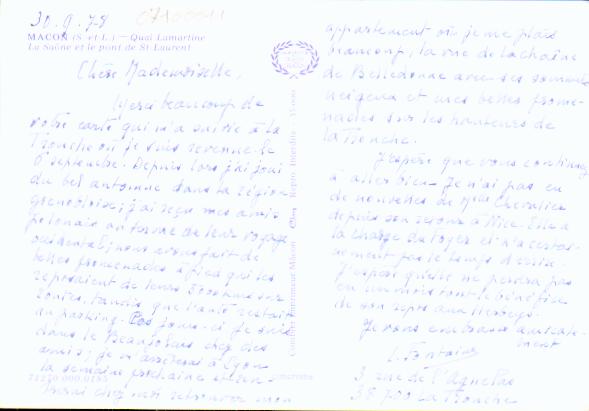 30.9.78
07100011
MACON (S.-et-L.) — Quai Lamartine
La Saône et le pont de St-Laurent
Chère Mademoiselle,
Merci beaucoup de
votre carte qui m'a suivie à la
Tronche où je suis revenue le
6 septembre. Depuis lors j'ai joui
du bel automne dans la région
grenobloise; j'ai reçu mes amis
polonais au terme de leur voyage
occidental; nous avons fait de
belles promenades à pied qui les
reposaient de leurs kms sur
routes, tandis que l'auto restait
au parking. Ces jours-ci je suis
dans le Beaujolais chez des
amis; je m'arrêterai à Lyon
la semaine prochaine et
chez moi retrouver mon
71270 000.0185
Combier Imprimeur Mâcon Repro. Interdite
appartement où je me plais
beaucoup, la vue de la chaîne
de Belledonne avec ses sommets
neigeux et mes belles prome-
nades sur les hauteurs de
la Tronche.
J'espère que vous continuez
à aller bien. Je n'ai pas eu
de nouvelles de Chevalier
depuis son retour à Nice. Elle a
la charge du foyer et n'a certai-
nement pas le temps d'écrire.
J'espère qu'elle ne perdra pas
en un mois tout le bénéfice
de son repos
Je vous embrasse amicale-
ment
L. Fontaine
3 rue de l'Agne Pas
38700 La Tronche